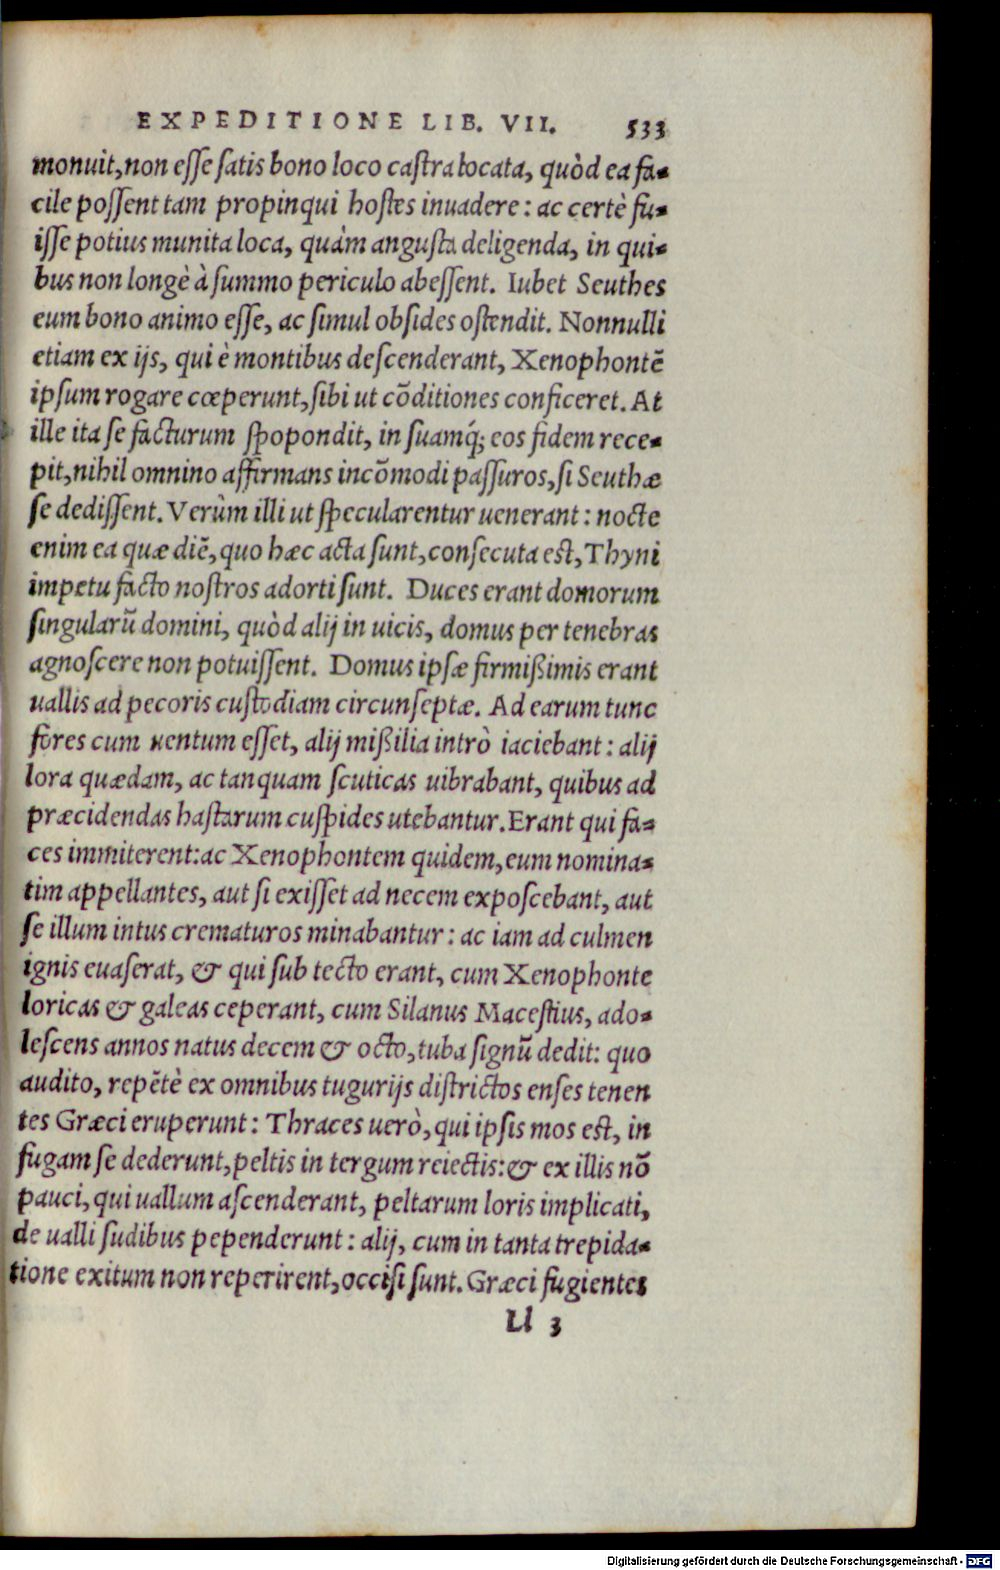 EXPEDITIONE LIB. VII. 533
monuit, non esse satis bono loco castra locata, quòd ea fa-
cile possent tam propinqui hostes inuadere: ac certè fu-
isse potius munita loca, quàm angusta deligenda, in qui-
bus non longè à summo periculo abessent. Iubet Seuthes
eum bono animo esse, ac simul obsides ostendit. Nonnulli
etiam ex ijs, qui è montibus descenderant, Xenophontē
ipsum rogare cœperunt, sibi ut cōditiones conficeret. At
ille ita se facturum spopondit, in suamq́; eos fidem rece-
pit, nihil omnino affirmans incōmodi passuros, si Seuthæ
se dedissent. Verùm illi ut specularentur uenerant: nocte
enim ea quæ diē, quo hæc acta sunt, consecuta est, Thyni
impetu facto nostros adorti sunt. Duces erant domorum
singularū domini, quòd alij in uicis, domus per tenebras
agnoscere non potuissent. Domus ipsæ firmißimis erant
uallis ad pecoris custodiam circunseptæ. Ad earum tunc
fores cum uentum esset, alij mißilia intrò iaciebant: alij
lora quædam, ac tanquam scuticas uibrabant, quibus ad
præcidendas hastarum cuspides utebantur. Erant qui fa-
ces immiterent: ac Xenophontem quidem, eum nomina-
tim appellantes, aut si exisset ad necem exposcebant, aut
se illum intus crematuros minabantur: ac iam ad culmen
ignis euaserat, & qui sub tecto erant, cum Xenophonte
loricas & galeas ceperant, cum Silanus Macestius, ado-
lescens annos natus decem & octo, tuba signū dedit: quo
audito, repētè ex omnibus tugurijs districtos enses tenen
tes Græci eruperunt: Thraces uerò, qui ipsis mos est, in
fugam se dederunt, peltis in tergum reiectis: & ex illis nō
pauci, qui uallum ascenderant, peltarum loris implicati,
de ualli sudibus pependerunt: alij, cum in tanta trepida-
tione exitum non reperirent, occisi sunt. Græci fugientes
Ll 3
Digitalisierung gefördert durch die Deutsche Forschungsgemeinschaft - DFG